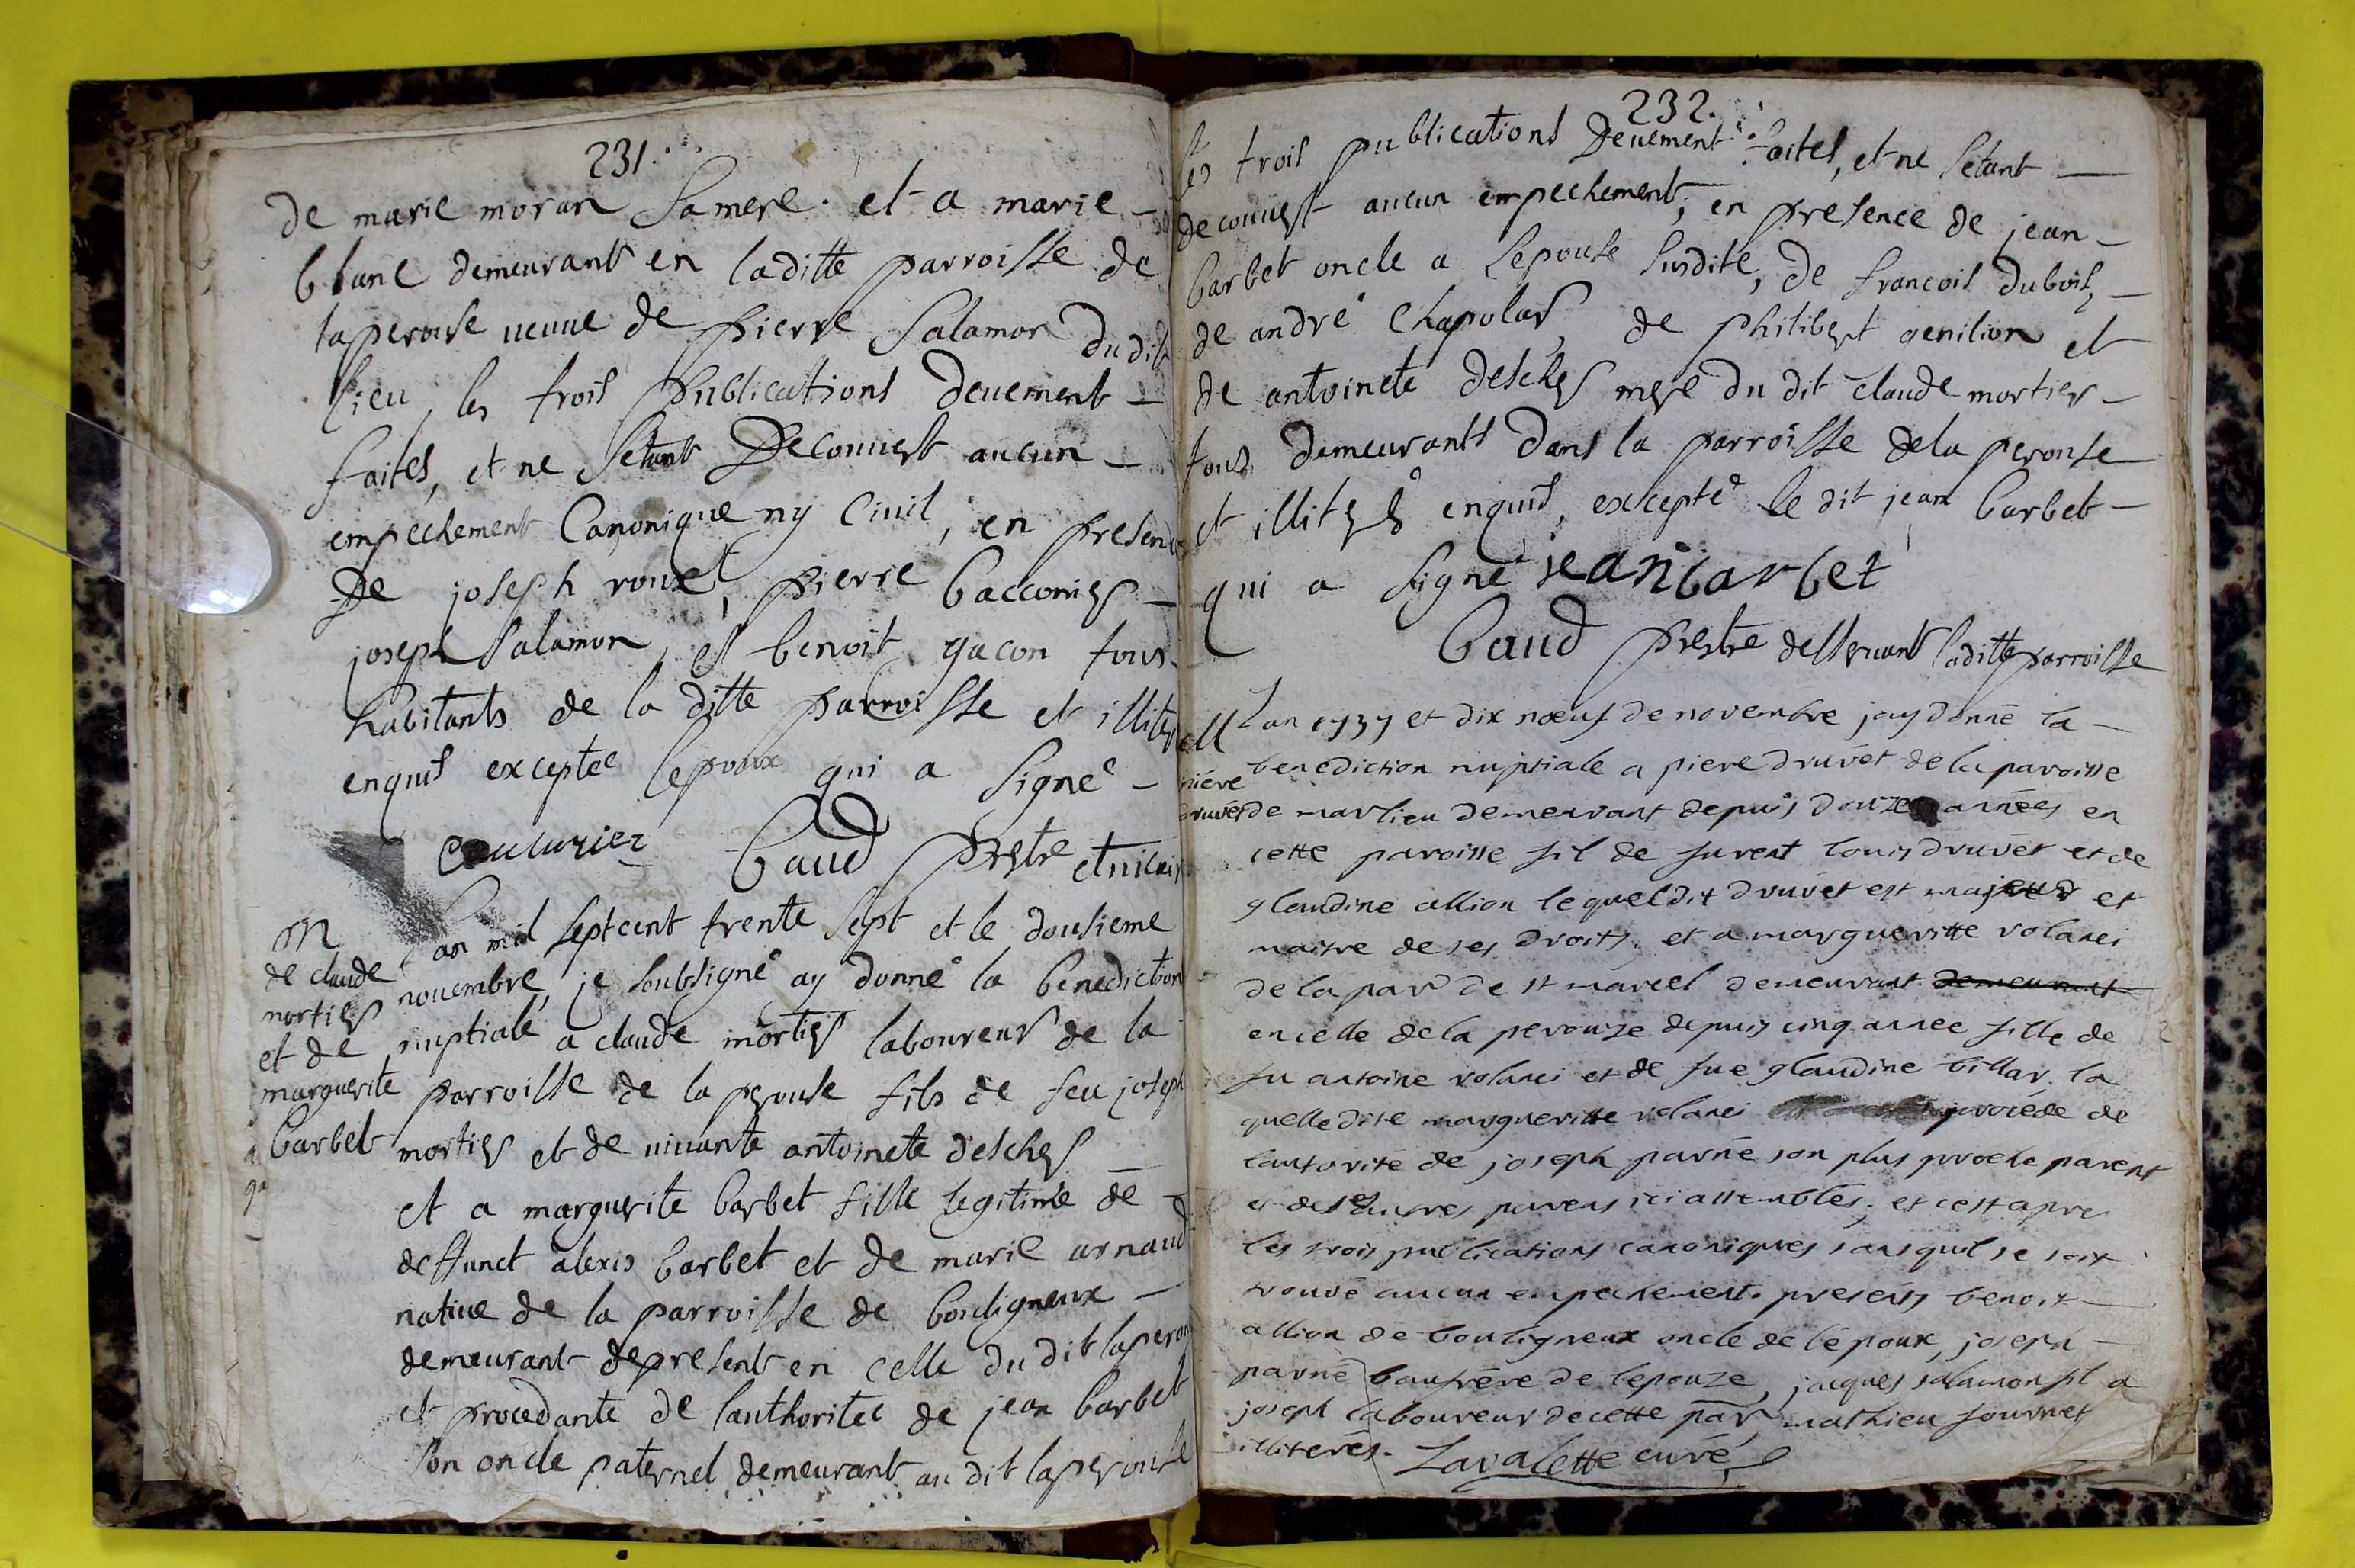 231.
de marie moran Samere. et a marie
blanc demeurant en laditte parroisse de
laperouse veuve de pierre Salamon dudit
lieu, les trois publications deuement
faites, et ne Setant Decouvert aucun
empechement Canonique ny Civil, en presence
De joseph roux, pierre baccomier
joseph Salamon, et benoit gacon tous
habitants de la ditte parroisse et illiter
enquis excepté lepoux qui a Signé
couturier baud prestre et vicair
M
de claude
mortier
et de
marguerite
barbet
Lan mil Sept cent trente Sept et le dousieme
novembre, je Soubsigné ay donné la benediction
nuptiale a claude mortier laboureur de la
parroisse de la perouse fils de feu joseph
mortier et de vivante antoinete descher
et a marguerite barbet fille legitime de
deffunct alexis barbet et de marie arnaud
native de la parroisse de bouligneux
demeurant depresent en celle du dit laperou
et procedante de lauthoritée de jean barbet
Son oncle paternel demeurant au dit laperouse
232.
les trois publications Deuement faites, et ne Setant
decouvert aucun empechement, en presence de jean
barbet oncle a lepouse Susdite, de francois dubois,
de andré Chapolar, de philibert genilion et
de antoinete descher mere du dit claude mortier
tous demeurants dans la parroisse dela perouse
et illiter enquis, excepté le dit jean barbet
qui a Signé jean barbet
baud prestre desservant laditte parroisse
M
piére
druvet
Lan 1737 et dix nœuf de novembre jay donné la
benediction nuptiale a piere druvet de la paroisse
de marlieu demeurant depuis douze années en
cette paroisse fil de fu rent louis druvet et de
glaudine allion lequel dit druvet est majeur et
maitre de ses droits, et a margueritte volanci
de la par de st marcel demeurant demeurant
en celle de la perouze depuis cinq année fille de
fu antoine volanci et de fue glaudine billar. la
quelle dite margueritte volanci procéde de
lautorité de joseph parné son plus proche parent
et de ses autres parens ici assemblés, et cest apres
les trois publications canoniques sans quil se soit
trouvé aucun empechement. presens benoit
allion de bouligneux oncle de lépoux, joseph
parné baufrére de lepouze, jacques salamon fil a
joseph laboureur de cette par, mathieu fournet
illiterés. Lavalette curé